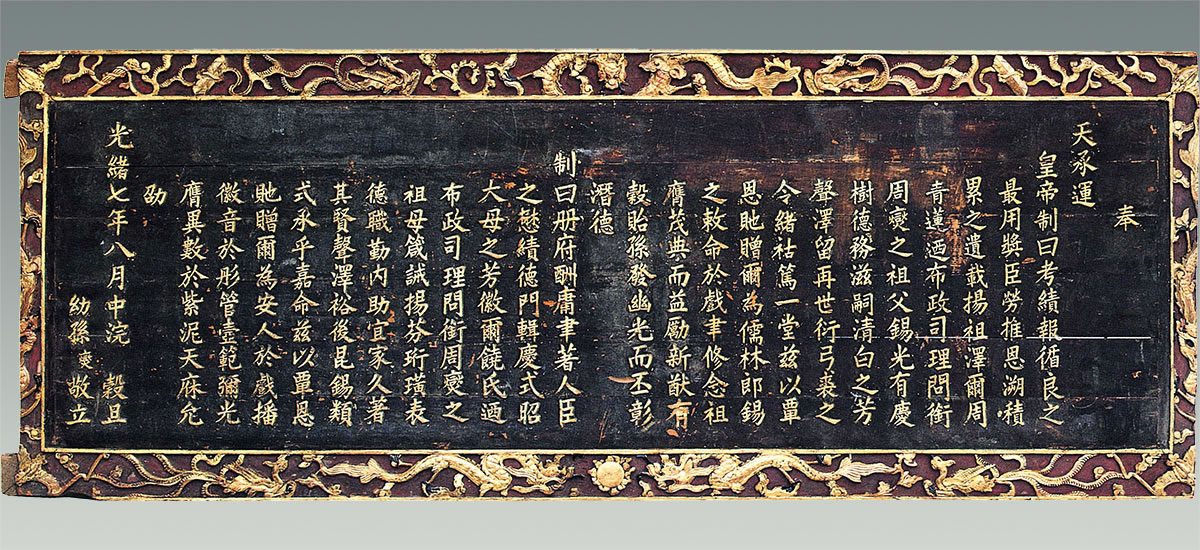 奉
天承運
皇帝制曰考績報循良之
最用奬臣勞推恩溯積
累之遺載揚祖澤爾周
青蓮迺布政司理問銜
周奭之祖父錫光有慶
樹德務滋嗣清白之芳
聲澤留再世衍弓裘之
令緒祜篤一堂兹以覃
恩貤贈爾為儒林郎錫
之敕命於戲聿修念祖
膺茂典而益勵新猷有
穀貽孫發幽光而丕彰
潛德
制曰册府酬庸聿著人臣
之懋績德門輯慶式昭
大母之芳徽爾饒氏迺
布政司理問銜周奭之
祖母箴誡揚芬珩璜表
德職勤内助宜家久著
其賢聲澤裕後昆錫類
式承乎嘉命兹以覃恩
貤贈爾為安人於戲播
徽音於彤管壼範彌光
膺異數於紫泥天庥允
劭
光緒七年八月中浣 穀旦
幼孫奭敬立